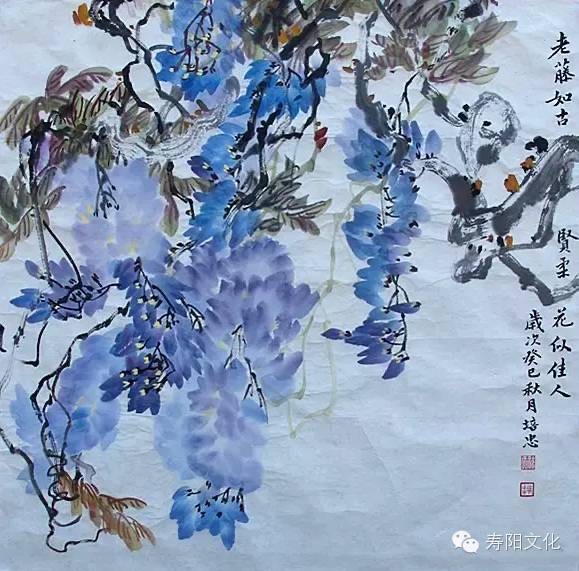 老藤如古賢柔花似佳人
歲次癸巳秋月培忠
寿阳文化